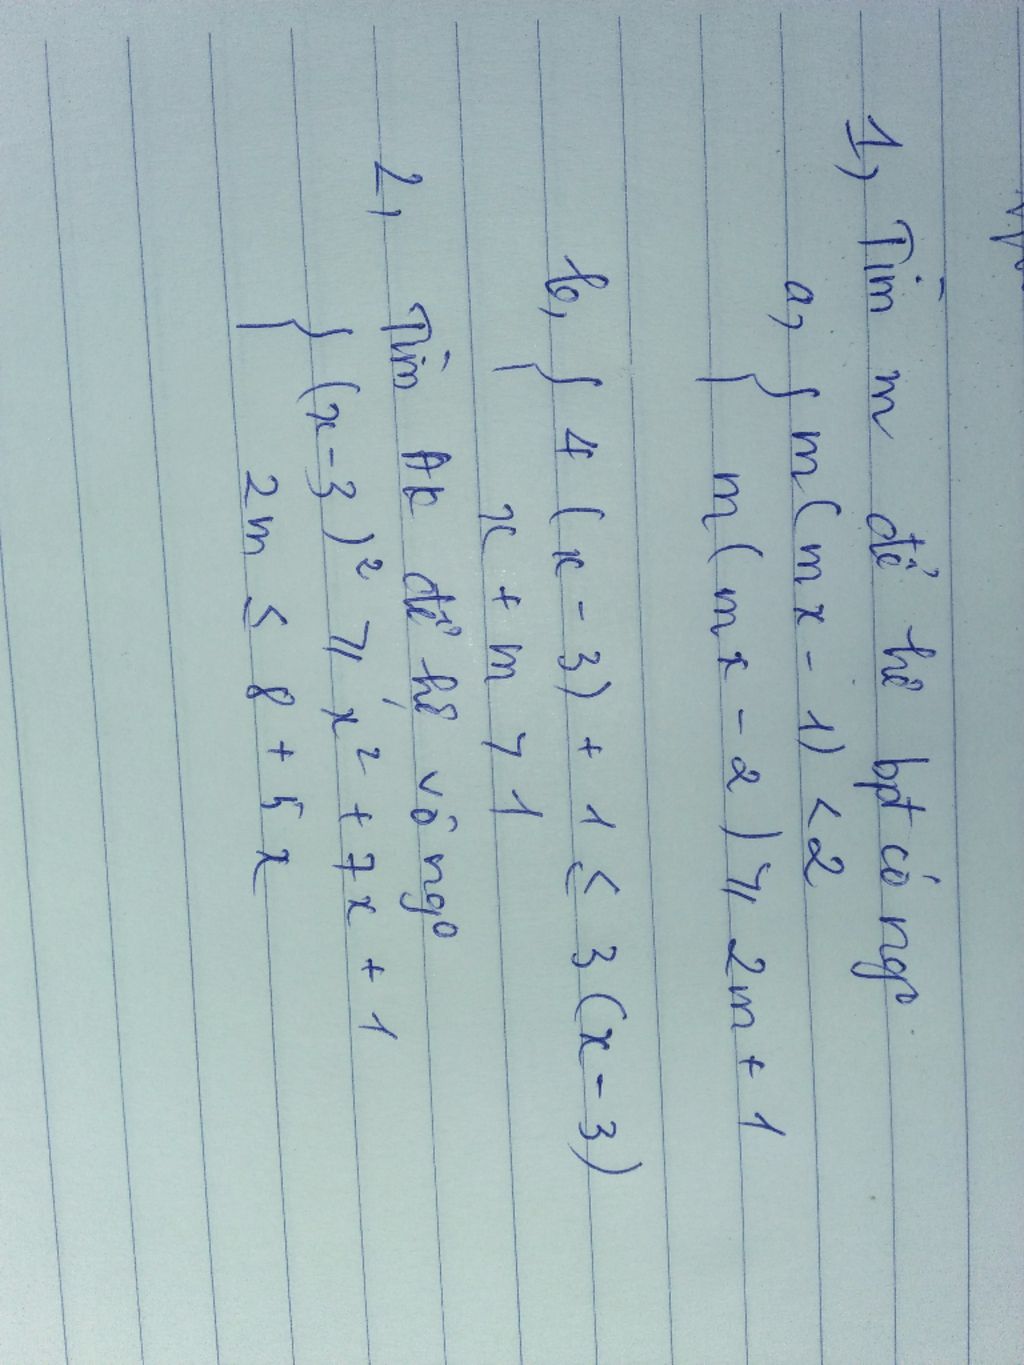 1, Tìm m để hệ bpt có ngo
a, { m(mx - 1) < 2
m(mx - 2) ≥ 2m + 1
b, { 4(x - 3) + 1 ≤ 3(x - 3)
x + m > 1
2, Tìm để hệ vô ngo
{ (x - 3)² ≥ x² + 7x + 1
2m ≤ 8 + 5x